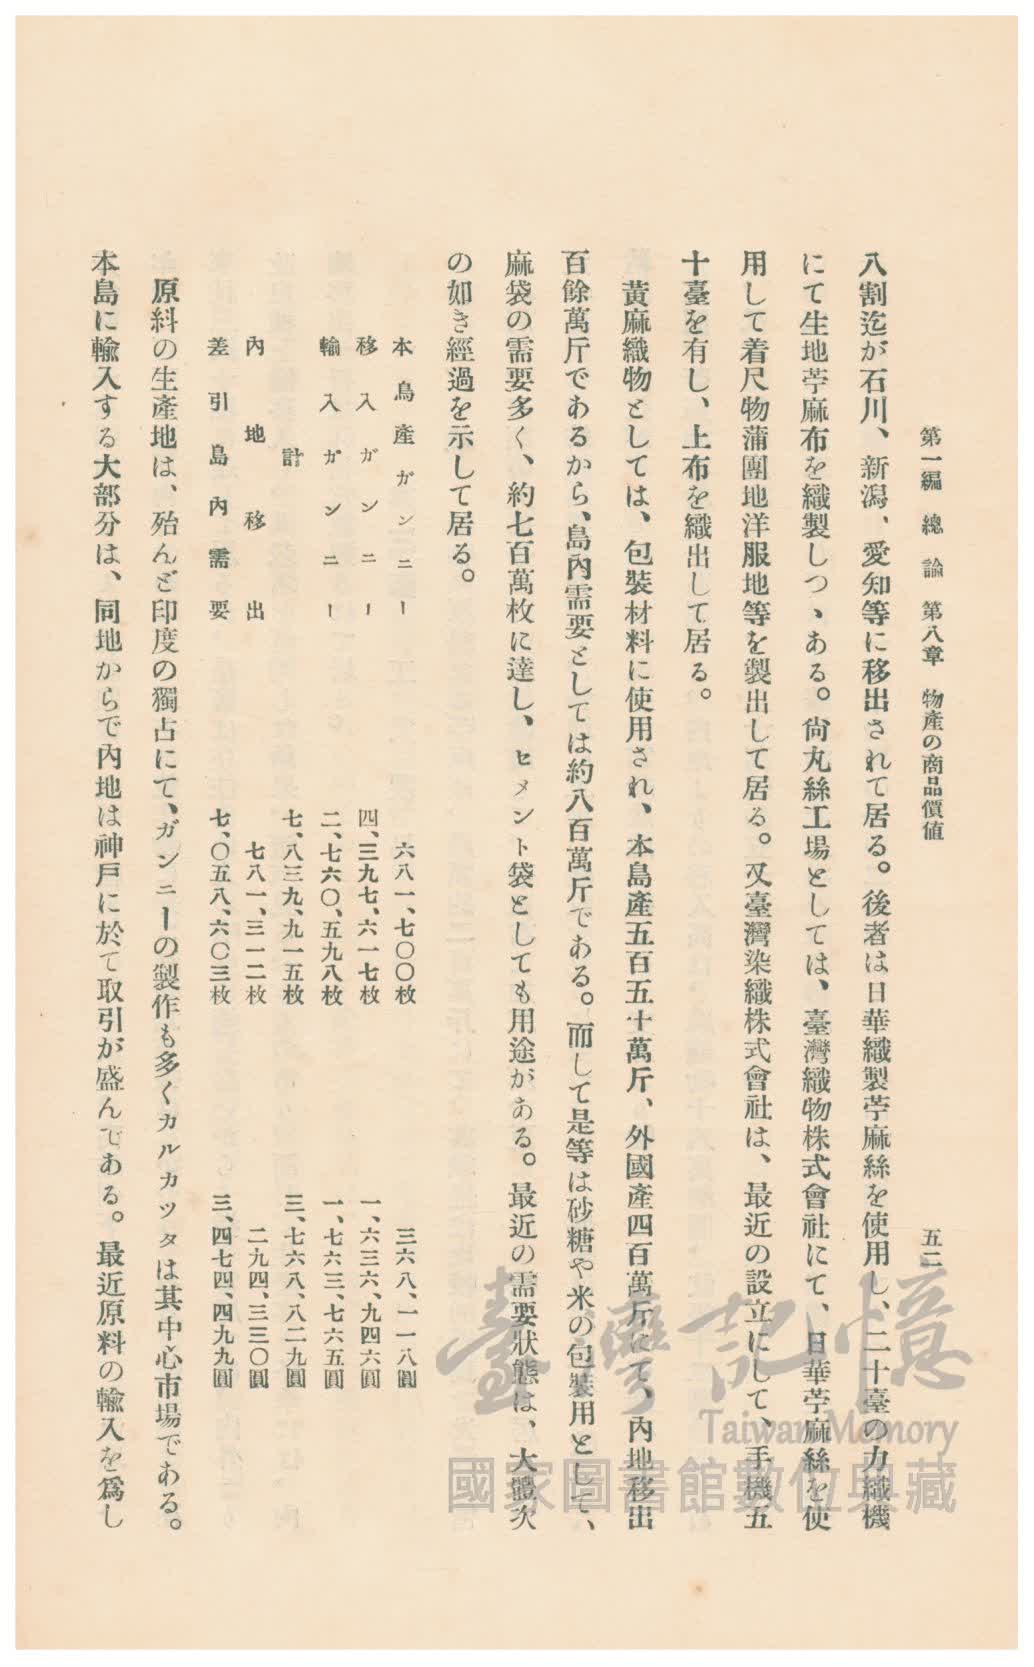 第一編 總論 第八章 物產の商品價値 五二
八割迄が石川、新潟、愛知等に移出されて居る。後者は日華織製苧麻絲を使用し、二十臺の力織機
にて生地苧麻布を織製しつゝある。尙丸絲工場としては、臺灣織物株式會社にて、日華苧麻絲を使
用して着尺物蒲團地洋服地等を製出して居る。又臺灣染織株式會社は、最近の設立にして、手機五
十臺を有し、上布を織出して居る。
黃麻織物としては、包裝材料に使用され、本島產五百五十萬斤、外國產四百萬斤にて、內地移出
百餘萬斤であるから、島內需要としては約八百萬斤である。而して是等は砂糖や米の包裝用として、
麻袋の需要多く、約七百萬枚に達し、セメント袋としても用途がある。最近の需要狀態は、大體次
の如き經過を示して居る。
本島產ガンニー 六八一、七〇〇枚 三六八、一一八圓
移入ガンニー 四、三九七、六一七枚 一、六三六、九四六圓
輸入ガンニー 二、七六〇、五九八枚 一、七六三、七六五圓
計 七、八三九、九一五枚 三、七六八、八二九圓
內地移出 七八一、三一二枚 二九四、三三〇圓
差引島內需要 七、〇五八、六〇三枚 三、四七四、四九九圓
原料の生產地は、殆んど印度の獨占にて、ガンニーの製作も多くカルカッタは其中心市場である。
本島に輸入する大部分は、同地からで內地は神戶に於て取引が盛んである。最近原料の輸入を爲し
臺灣記憶
Taiwan Memory
國家圖書館數位典藏